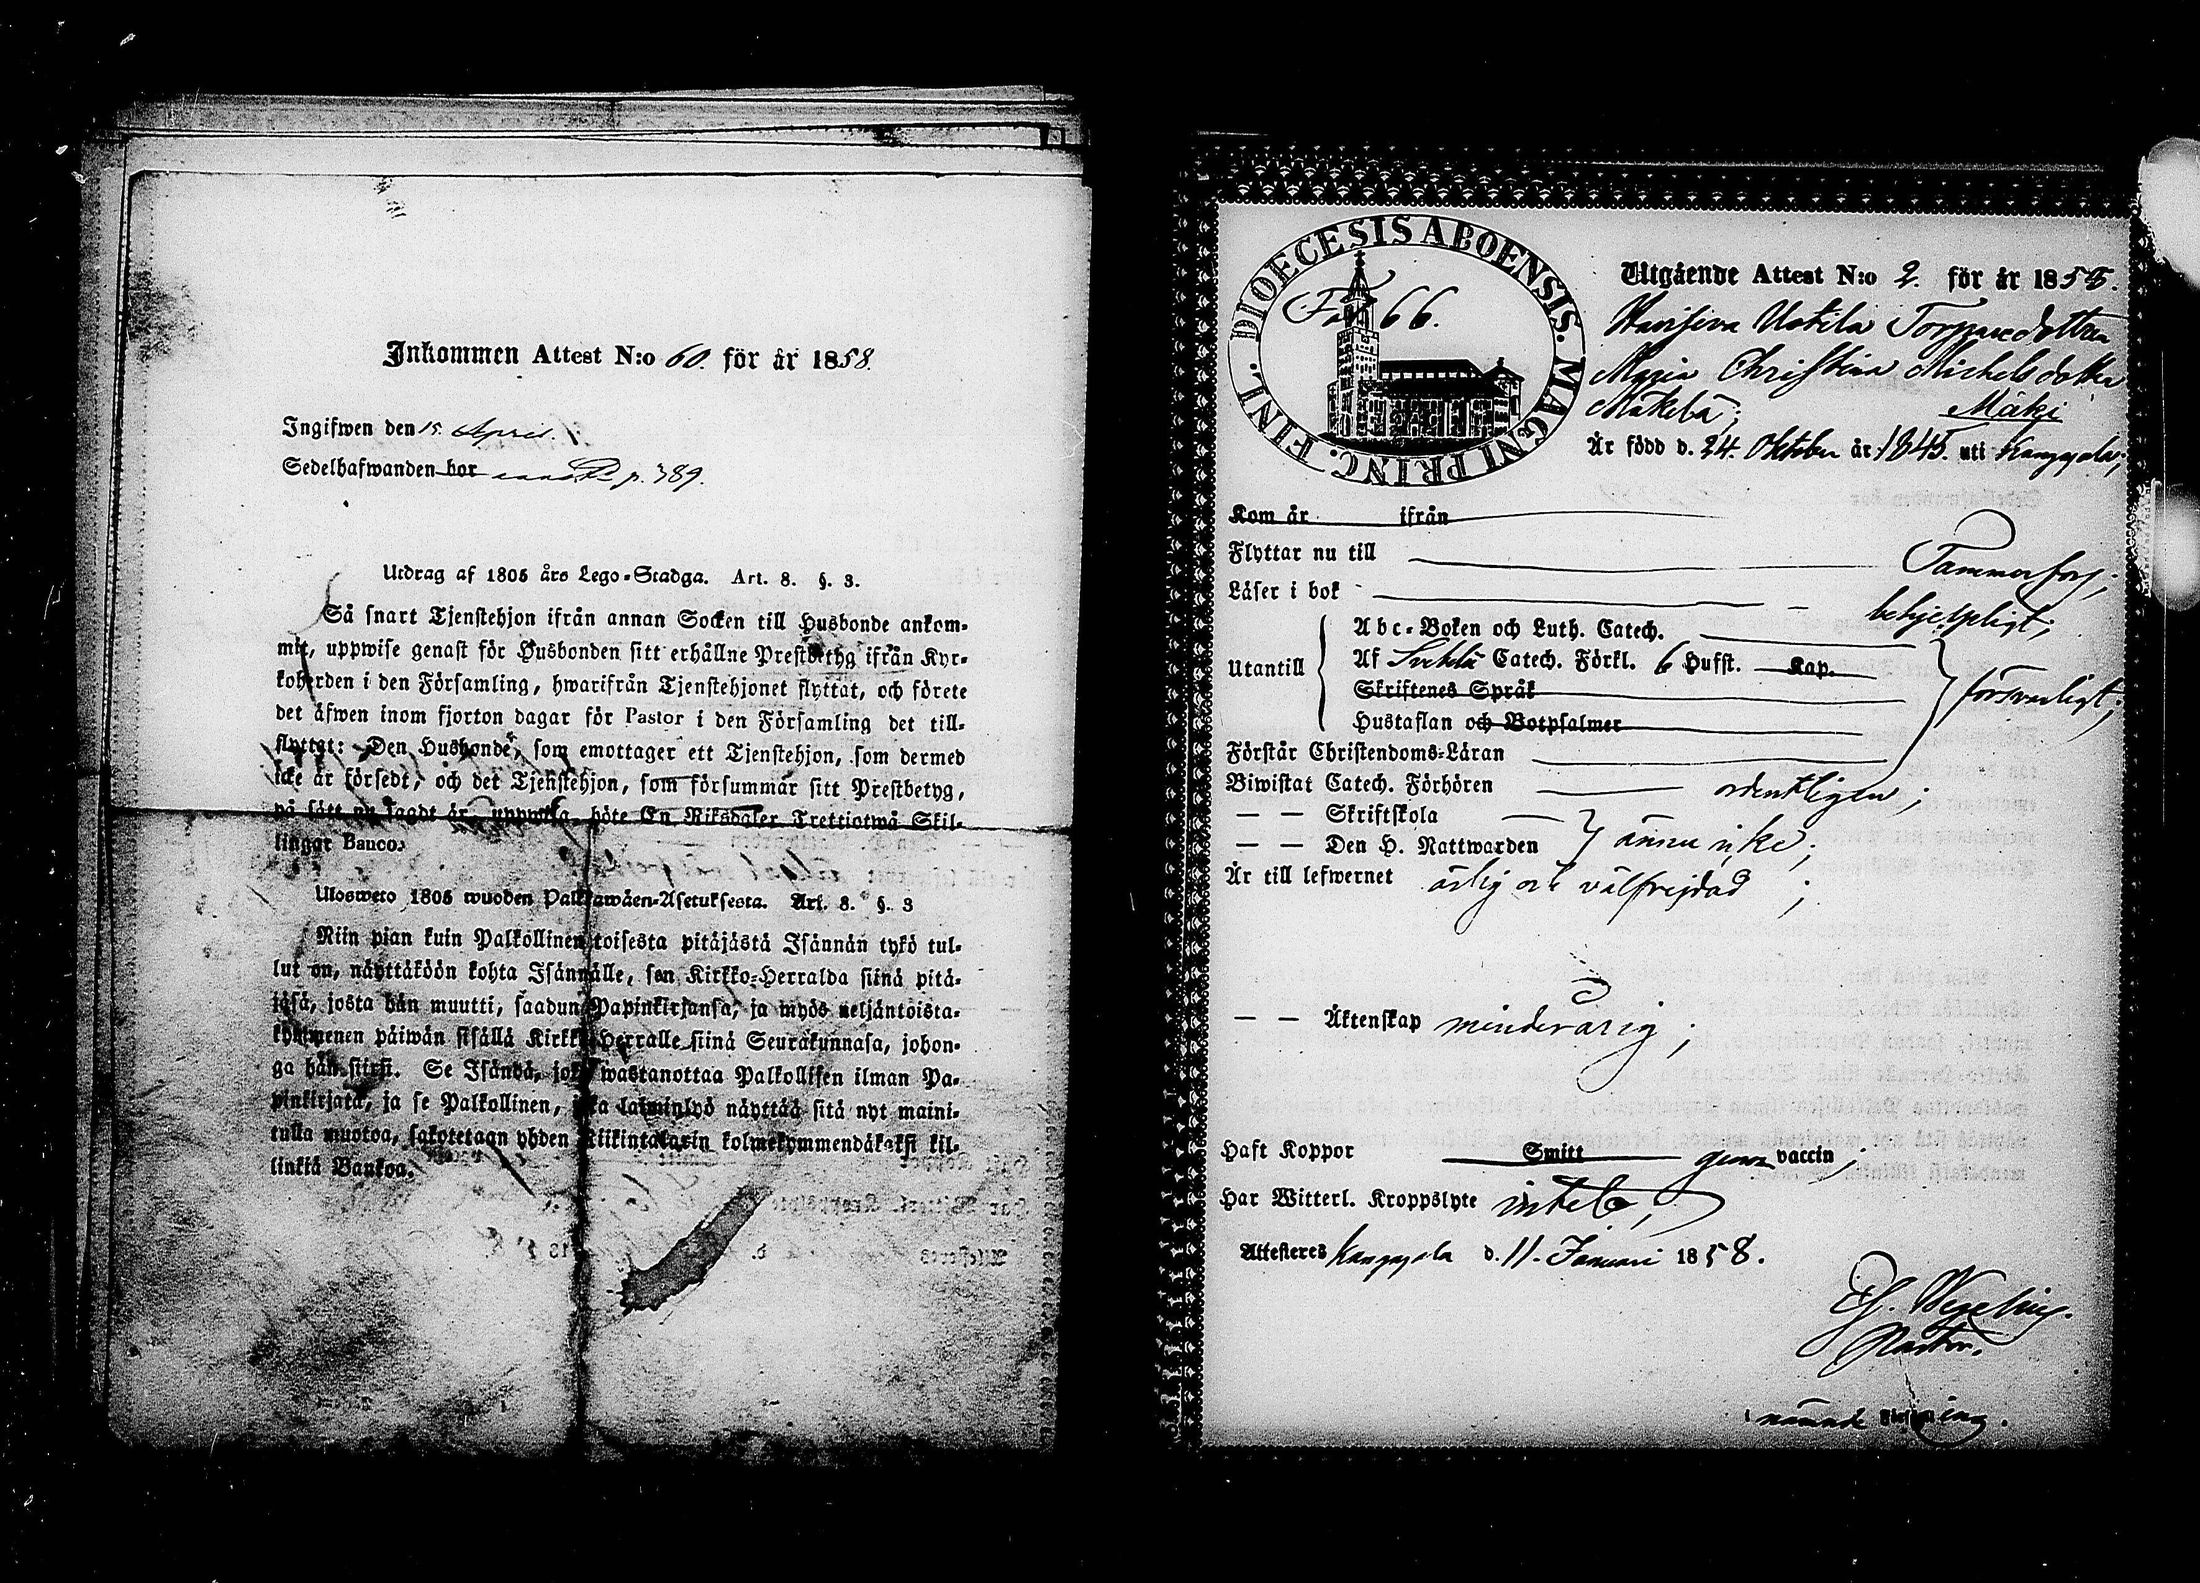 Inkommen Attest N:o 60. för år 1858.
Ingifwen den 15 April.
Sedelhafwanden bor p. 389.
Utdrag af 1805 års Lego-Stadga. Art. 8. §. 3.
Så snart Tjenstehjon ifrån annan Socken till Husbonde ankom-
mit, uppwise genast för Husbonden sitt erhållne Prestbetyg ifrån Kyr-
koherden i den Församling, hwarifrån Tjenstehjonet flyttat, och förete
det äfwen inom fjorton dagar för Pastor i den Församling det till-
flyttat: Den Husbonde, som emottager ett Tjenstehjon, som dermed
icke är försedt, och det Tjenstehjon, som försummar sitt Prestbetyg,
på sätt nu sagdt är, uppwisa, böte En Riksdaler Trettiotwå Skil-
lingar Banco.
Ulosweto 1805 wuoden Palkkawäen-Asetuksesta. Art. 8. §. 3
Niin pian kuin Palkollinen toisesta pitäjästä Isännän tykö tul-
lut on, näyttäköön kohta Isännälle, sen Kirkko-Herralda siinä pitä-
jäsä, josta hän muutti, saadun Papinkirjansa, ja myös neljäntoista-
kymmenen päiwän sisällä Kirkko-Herralle siinä Seurakunnasa, johon-
ga hän siirsi. Se Isändä, joka wastanottaa Palkollisen ilman Pa-
pinkirjata, ja se Palkollinen, joka laiminlyö näyttää sitä nyt maini-
tulla muotoa, sakotetaan yhden Riikintalarin kolmekymmendäkaksi kil-
linkiä Bankoa.
DIOECESIS ABOENSIS. MAGNI PRINC. FINL.
Fol 66.
Utgående Attest N:o 2. för år 1858.
Torparedottren
Maria Christina Michelsdotter
Mäkelä; Mäki
Är född d. 24. Oktober år 1845. uti Kangasala;
Kom år ifrån
Flyttar nu till Tammerfors;
Läser i bok behjelpligt;
Utantill
Abc-Boken och Luth. Catech.
Af Svebilii Catech. Förkl. 6 Hufst. Kap.
Skriftenes Språk
Hustaflan och Botpsalmer
försvarligt;
Förstår Christendoms-Läran
Biwistat Catech. Förhören ordentligen;
— — Skriftskola
— — Den H. Nattwarden ännu icke;
Är till lefwernet ärlig och välfrejdad;
— — Äktenskap minderårig;
Haft Koppor Smitt genom vaccin;
Har Witterl. Kroppslyte intet;
Attesteres Kangasala d. 11. Januari 1858.
Pastor.
i nämnde Församling.